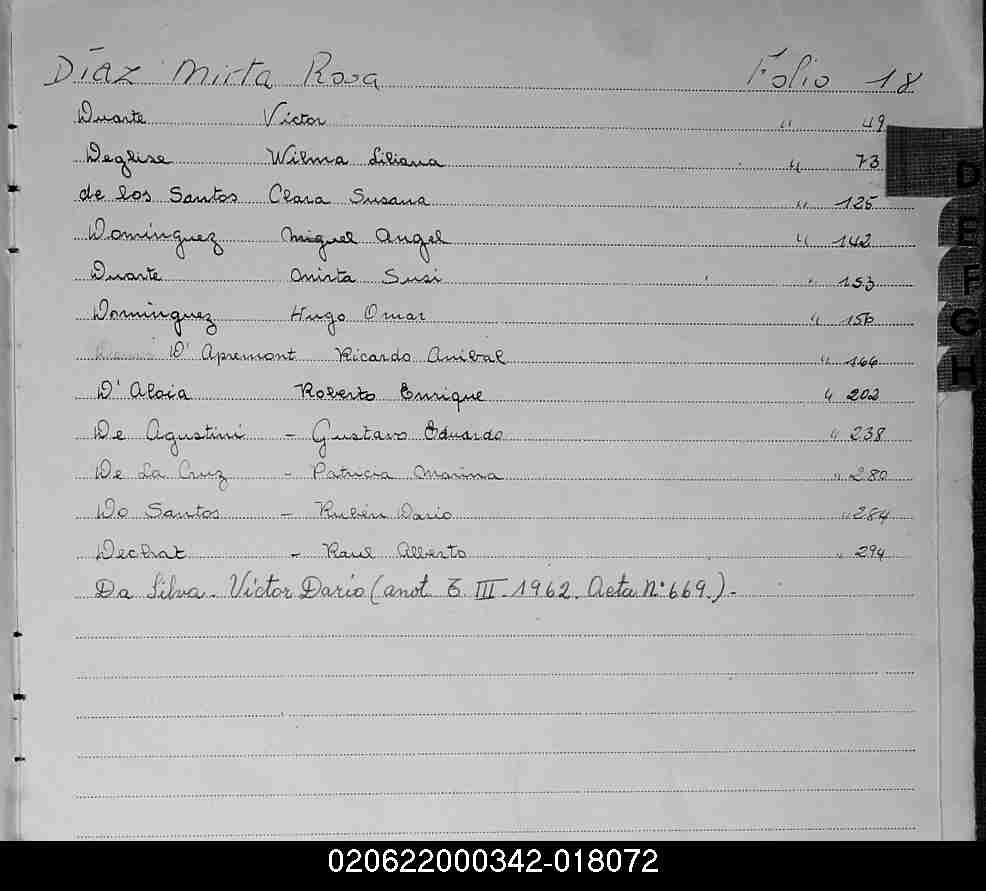 Díaz Mirta Rosa Folio 18
Duarte Victor " 49
Deglise Wilma Liliana " 73
de los Santos Clara Susana " 125
Domínguez Miguel Angel " 142
Duarte Mirta Susi " 153
Domínguez Hugo Omar "
D' Apremont Ricardo Anibal " 166
D' Aloia Roberto Enrique " 202
De Agustini - Gustavo Eduardo " 238
De La Cruz - Patricia Marina " 280
Do Santos - Rubén Dario " 284
Dechat - Raul Alberto " 294
Da Silva. Víctor Darío (anot. III. 1962. Acta Nº 669.) -
D
E
F
G
H
020622000342-018072